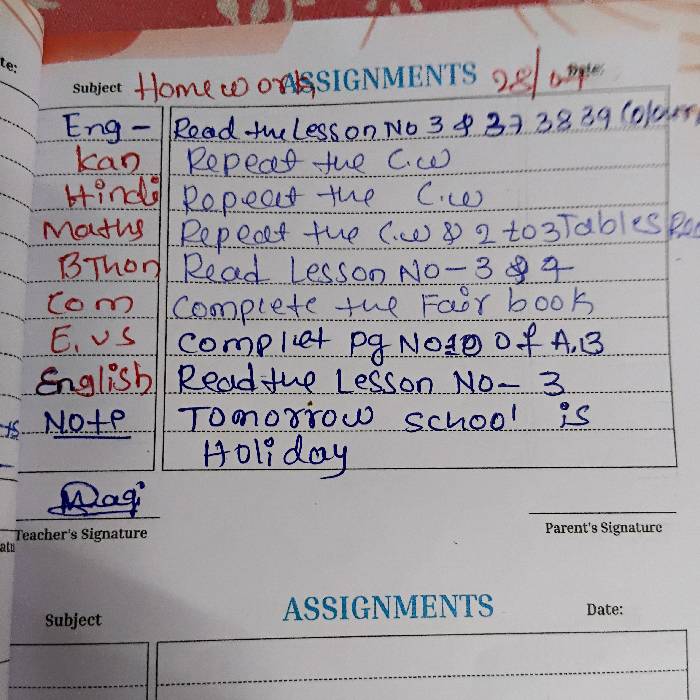 te:
Subject Homework ASSIGNMENTS 28/ Date:
Eng - Read the Lesson No 3 & 37 38 39 Colour
Kan Repeat the C.w
Hindi Repeat the C.w
Maths Repeat the C.w & 2 to 3 Tables
B Thon Read Lesson No - 3 & 4
Com Complete the Fair book
E.VS Complet pg No 10 of A.B
English Read the Lesson No - 3
Note Tomorrow school is
Holiday
Teacher's Signature Parent's Signature
Subject ASSIGNMENTS Date: